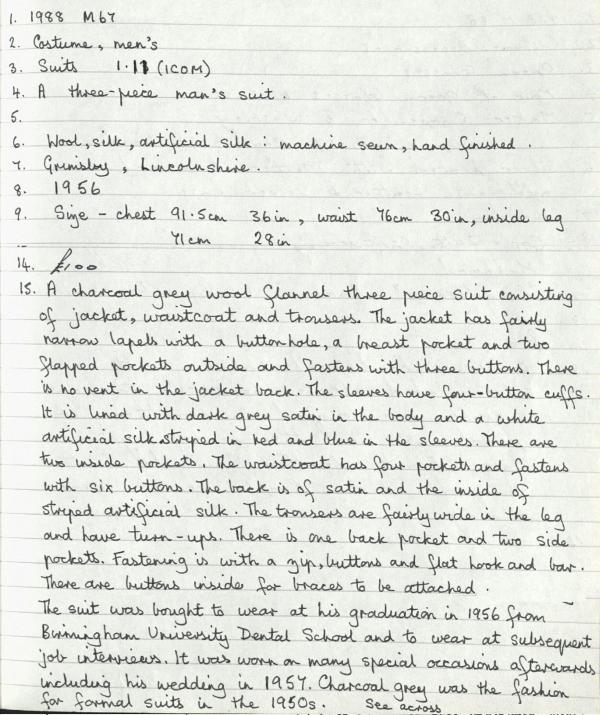 1. 1988 M67
2. Costume, men's
3. Suits 1.11 (ICOM)
4. A three-piece man's suit.
5.
6. Wool, silk, artificial silk : machine sewn, hand finished.
7. Grimsby, Lincolnshire.
8. 1956
9. Size - chest 91.5cm 36in, waist 76cm 30in, inside leg
71cm 28in
14. £100
15. A charcoal grey wool flannel three piece suit consisting
of jacket, waistcoat and trousers. The jacket has fairly
narrow lapels with a buttonhole, a breast pocket and two
flapped pockets outside and fastens with three buttons. There
is no vent in the jacket back. The sleeves have four-button cuffs.
It is lined with dark grey satin in the body and a white
artificial silk striped in red and blue in the sleeves. There are
two inside pockets. The waistcoat has four pockets and fastens
with six buttons. The back is of satin and the inside of
striped artificial silk. The trousers are fairly wide in the leg
and have turn-ups. There is one back pocket and two side
pockets. Fastening is with a zip, buttons and flat hook and bar.
There are buttons inside for braces to be attached.
The suit was bought to wear at his graduation in 1956 from
Birmingham University Dental School and to wear at subsequent
job interviews. It was worn on many special occasions afterwards
including his wedding in 1957. Charcoal grey was the fashion
for formal suits in the 1950s. See across